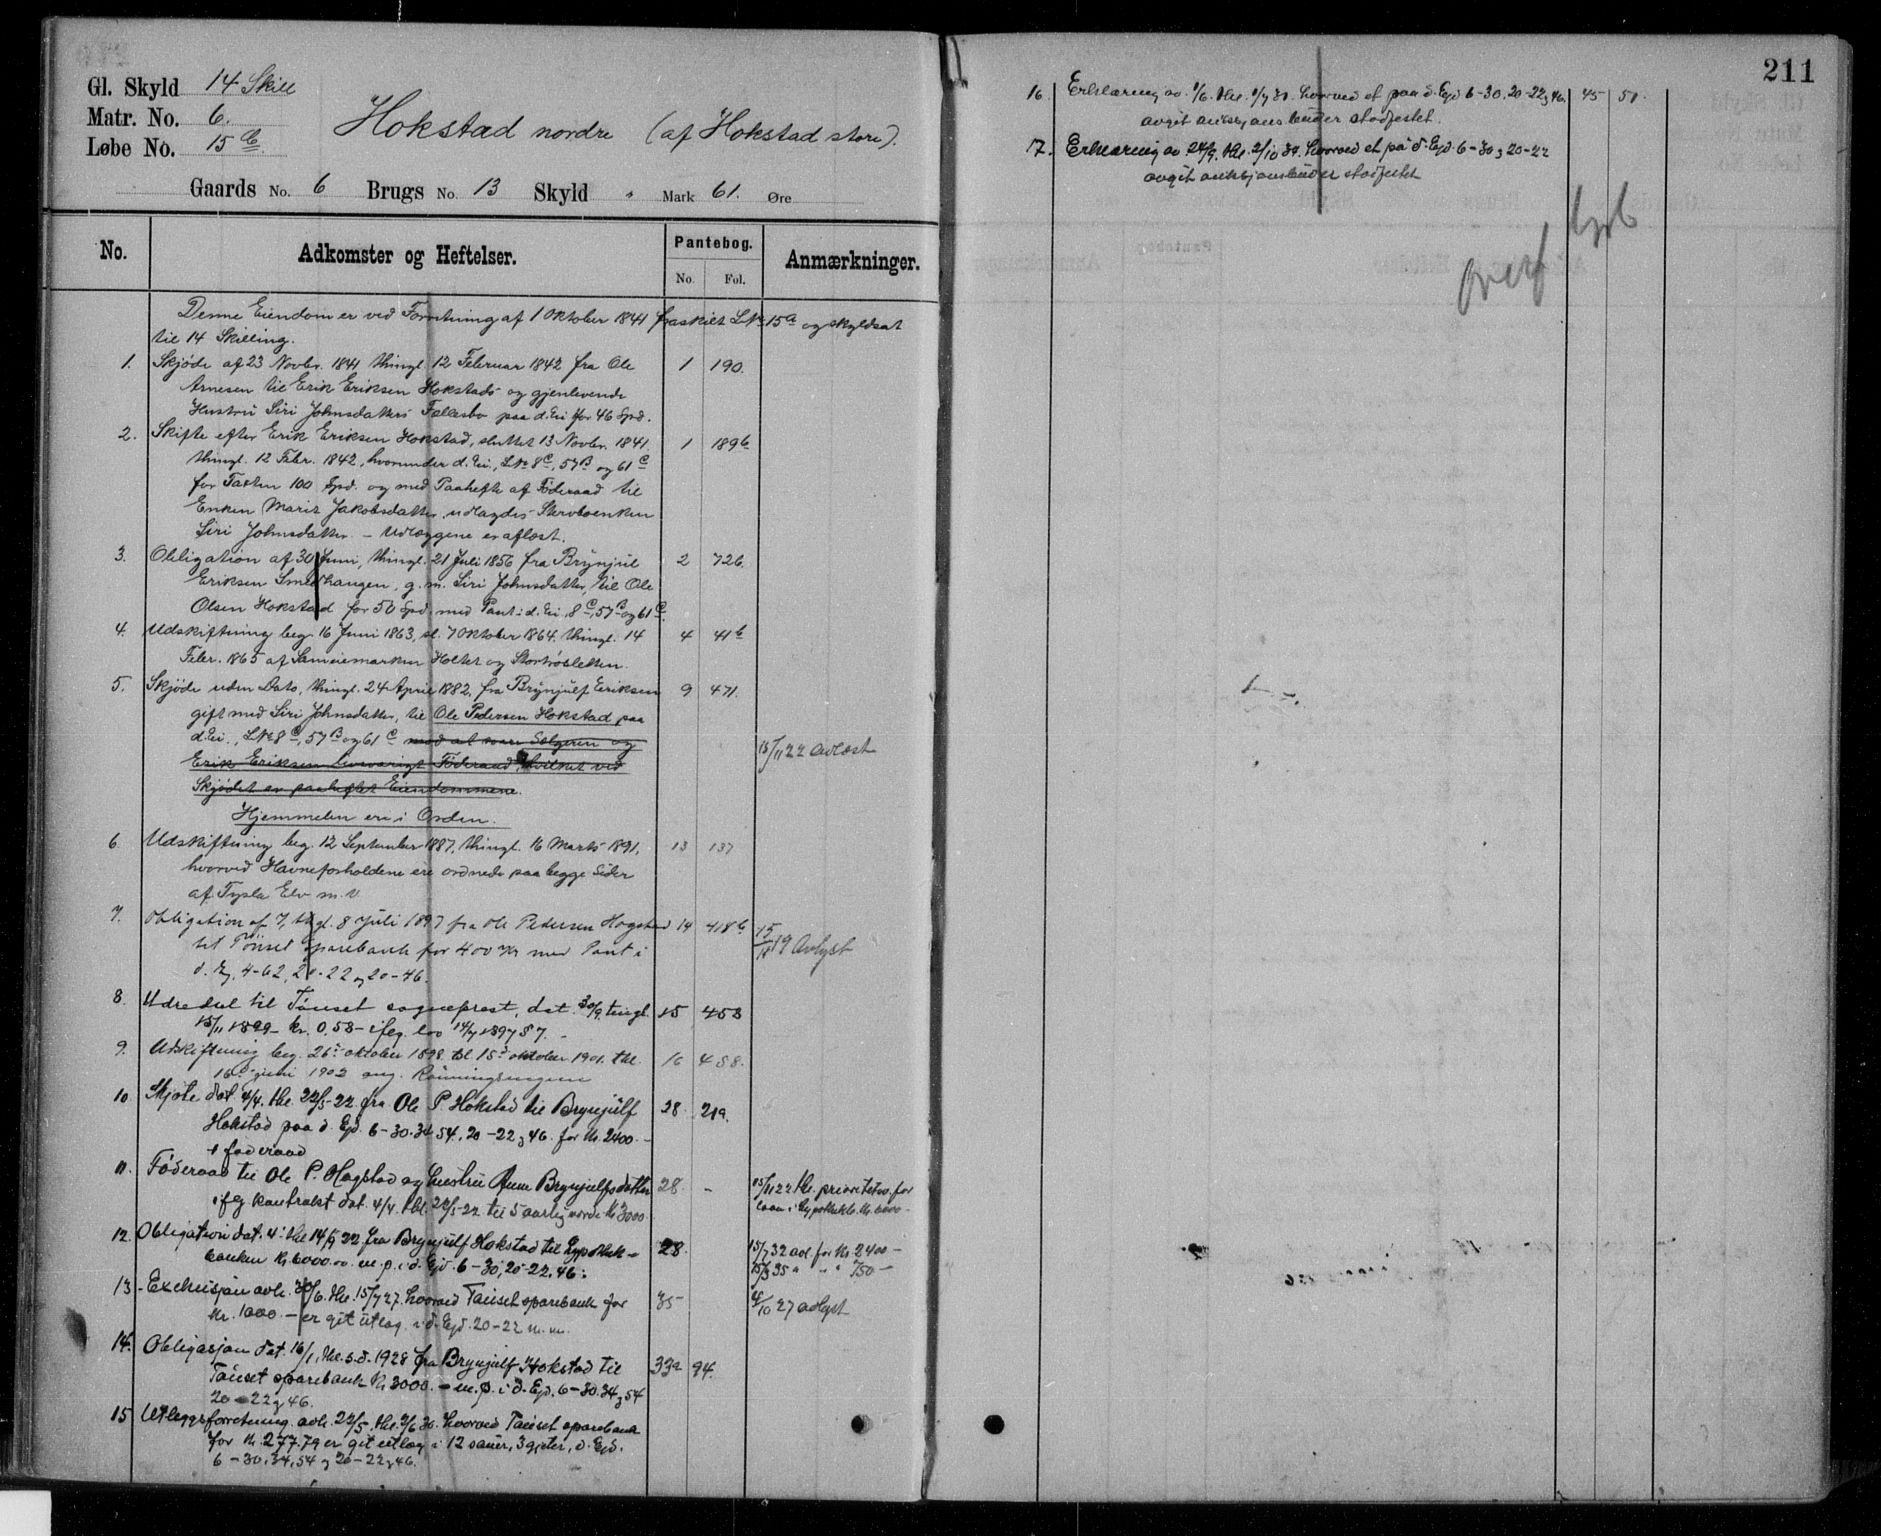 Gl. Skyld 14 Skill
Matr. No. 6.
Løbe No. 15 b.
Hokstad nordre (af Hokstad store).
Gaards No. 6 Brugs No. 13 Skyld " Mark 61. Øre
No. Adkomster og Heftelser. Pantebog. Anmærkninger.
No. Fol.
Denne Eiendom er ved Forretning af 1 Oktober 1841 fraskilt L.No 15 a og skyldsat
til 14 Skilling.
1. Skjøde af 23 Novbr. 1841 thingl. 12 Februar 1842 fra Ole 1 190.
Arnesen til Erik Eriksen Hokstads og gjenlevende
Hustru Siri Johnsdatters Fællesbo paa d. Ei. for 46 Spd.
2. Skifte efter Erik Eriksen Hokstad, sluttet 13 Novbr. 1841 1 189b
thingl. 12 Febr. 1842, hvorunder d. Ei., L.No 8 C, 57 B og 61 C
for Taxten 100 Spd. og med Paahefte af Føderaad til
Enken Marit Jakobsdatter udlagdes Stervboenken
Siri Johnsdatter. - Udlæggene er aflæst.
3. Obligation af 30 Juni, thingl. 21 Juli 1856 fra Brynjul 2 726.
Eriksen Smedhaugen, g. m. Siri Johnsdatter, til Ole
Olsen Hokstad for 50 Spd. med Pant i d. Ei, 8 C, 57 B og 61 C.
4. Udskiftning beg. 16 Juni 1863, sl. 7 Oktober 1864, thingl. 14 4 41b
Febr. 1865 af Sameiemarken Holtet og Stortrøsletten.
5. Skjøde uden Dato, thingl. 24 April 1882, fra Brynjulf Eriksen 9 471.
gift med Siri Johnsdatter, til Ole Pedersen Hokstad paa
d. Ei., L.No 8 C, 57 B og 61 C mod at svare Sælgeren og 15/11 22 Avlæst
Erik Eriksen livsvarigt Føderaad, hvilket ved
Skjødet er paaheftet Eiendommene.
Hjemmelen er i Orden.
6. Udskiftning beg. 12 September 1887, thingl. 16 Marts 1891, 13 137
hvorved Havneforholdene ere ordnede paa begge Sider
af Tysla Elv m. v.
7. Obligation af 7, thgl. 8 Juli 1897 fra Ole Pedersen Hogstad 14 418b
til Tönset Sparebank for 400 Kr med Pant i 15/11 19 Avlyst
d. Ej, 4-62, 20-22 og 20-46.
8. Udredsel til Tönset sogneprest, dat. 30/9, tingl. 15 453
15/11 1899 - kr. 0,53 - ifg. lov 14/7 1897 § 7.
9. Udskiftning beg. 26de oktober 1898 sl. 15de oktober 1901. thl. 16 488.
16de juni 1902 ang.
10. Skjøte dat 4/4. thl. 22/5-22 fra Ole P Hokstad til Brynjulf 28. 219.
Hokstad paa d. Ejd. 6-30.34 54, 20-22 og 46. for Kr. 2400. -
+ føderaad
11. Føderaad til Ole P. Hogstad og hustru Brynjulfsdatter 28. - 15/11 22 thl. prioritetsv. for
ifg kontrakt dat. 4/4. thl. 22/5-22 til 5 aarlig værdi Kr 3000 laan i hypothekb. Kr. 6000 -
12. Obligation dat. 4. thl 14/9 22 fra Brynjulf Hokstad til Hypothek- 28. 15/7 32 avl. for Kr. 2400 -
banken Kr 6000.00 m. p. i d. Ejd. 6-30, 20-22, 46. 15/3 35 " " " 750 -
13. Exekusjon avh. 30/6. thl. 15/7 27. hvorved Tønset sparebank for 35 4/10 27 avlyst
Kr. 1000. - er git utlæg i d. Ejd. 20-22 m. m.
14. Obligasjon dat. 16/1, thl. s. d. 1928 fra Brynjulf Hokstad til 33a 94.
Tønset sparebank Kr 3000. - m. p. i d. Ejd. 6-30. 34 og 54
20-22 og 46.
15 Utleggsforretning avh. 22/5. thl. 2/6 30. hvorved Tønset sparebank
for Kr. 277.79 er git utlæg i 12 sauer, 3 gjeter, d. Ejd.
6-30, 34, 54 og 20-22 og 46.
211
16. Erklæring av 1/6. thl. 1/7 30. hvorved et paa d. Ejd 6-30, 20-22 og 46. 45 51.
avgit auksjonsbud er stadfestet.
17. Erklæring av 24/9. thl. 2/10 34. hvorved et på d. Ejd. 6-30 og 20-22
avgit auksjonsbud er stadfestet